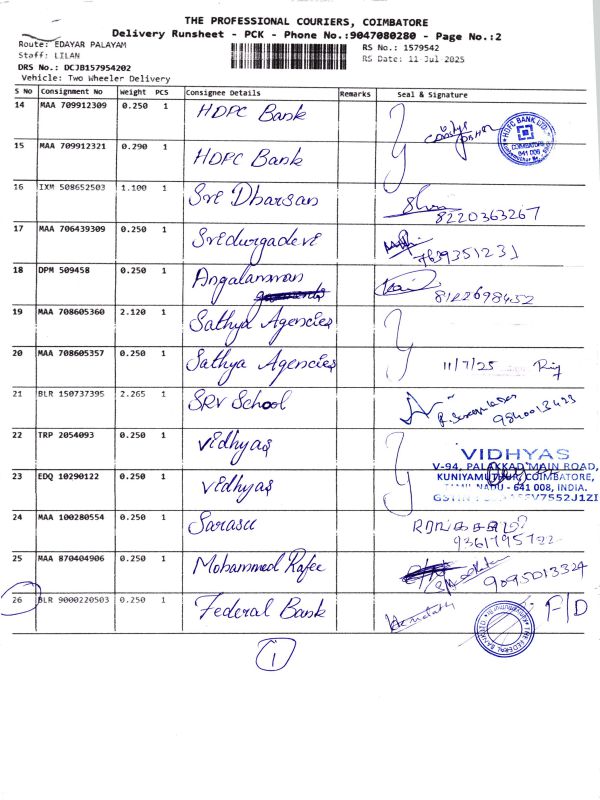 THE PROFESSIONAL COURIERS, COIMBATORE
Delivery Runsheet - PCK - Phone No.:9047080280 - Page No.:2
Route: EDAYAR PALAYAM
RS No.: 1579542
Staff: LILAN
RS Date: 11-Jul-2025
DRS No.: DCJB157954202
Vehicle: Two Wheeler Delivery
S No Consignment No Weight PCS Consignee Details Remarks Seal & Signature
14 MAA 709912309 0.250 1 HDFC Bank
HDFC BANK LTD.
COIMBATORE
641 008
15 MAA 709912321 0.290 1 HDFC Bank
16 IXM 508652503 1.100 1 Sri Dharsan
8220363267
17 MAA 706439309 0.250 1 Sridurgadevi
7639351231
18 DPM 509458 0.250 1 Angalamman
8122698452
19 MAA 708605360 2.120 1 Sathya Agencies
20 MAA 708605357 0.250 1 Sathya Agencies 11/7/25
21 BLR 150737395 2.265 1 SRV School
9840013423
22 TRP 2054093 0.250 1 Vidhyas
VIDHYAS
V-94, PALAKKAD MAIN ROAD,
23 EDQ 10290122 0.250 1 Vidhyas
KUNIYAMUTHUR, COIMBATORE,
TAMIL NADU - 641 008, INDIA.
24 MAA 100280554 0.250 1 Sarasu
9361795722
25 MAA 870404906 0.250 1 Mohammed Rafee
9095013324
26 BLR 9000220503 0.250 1 Federal Bank
THE FEDERAL BANK LTD
F/D
1